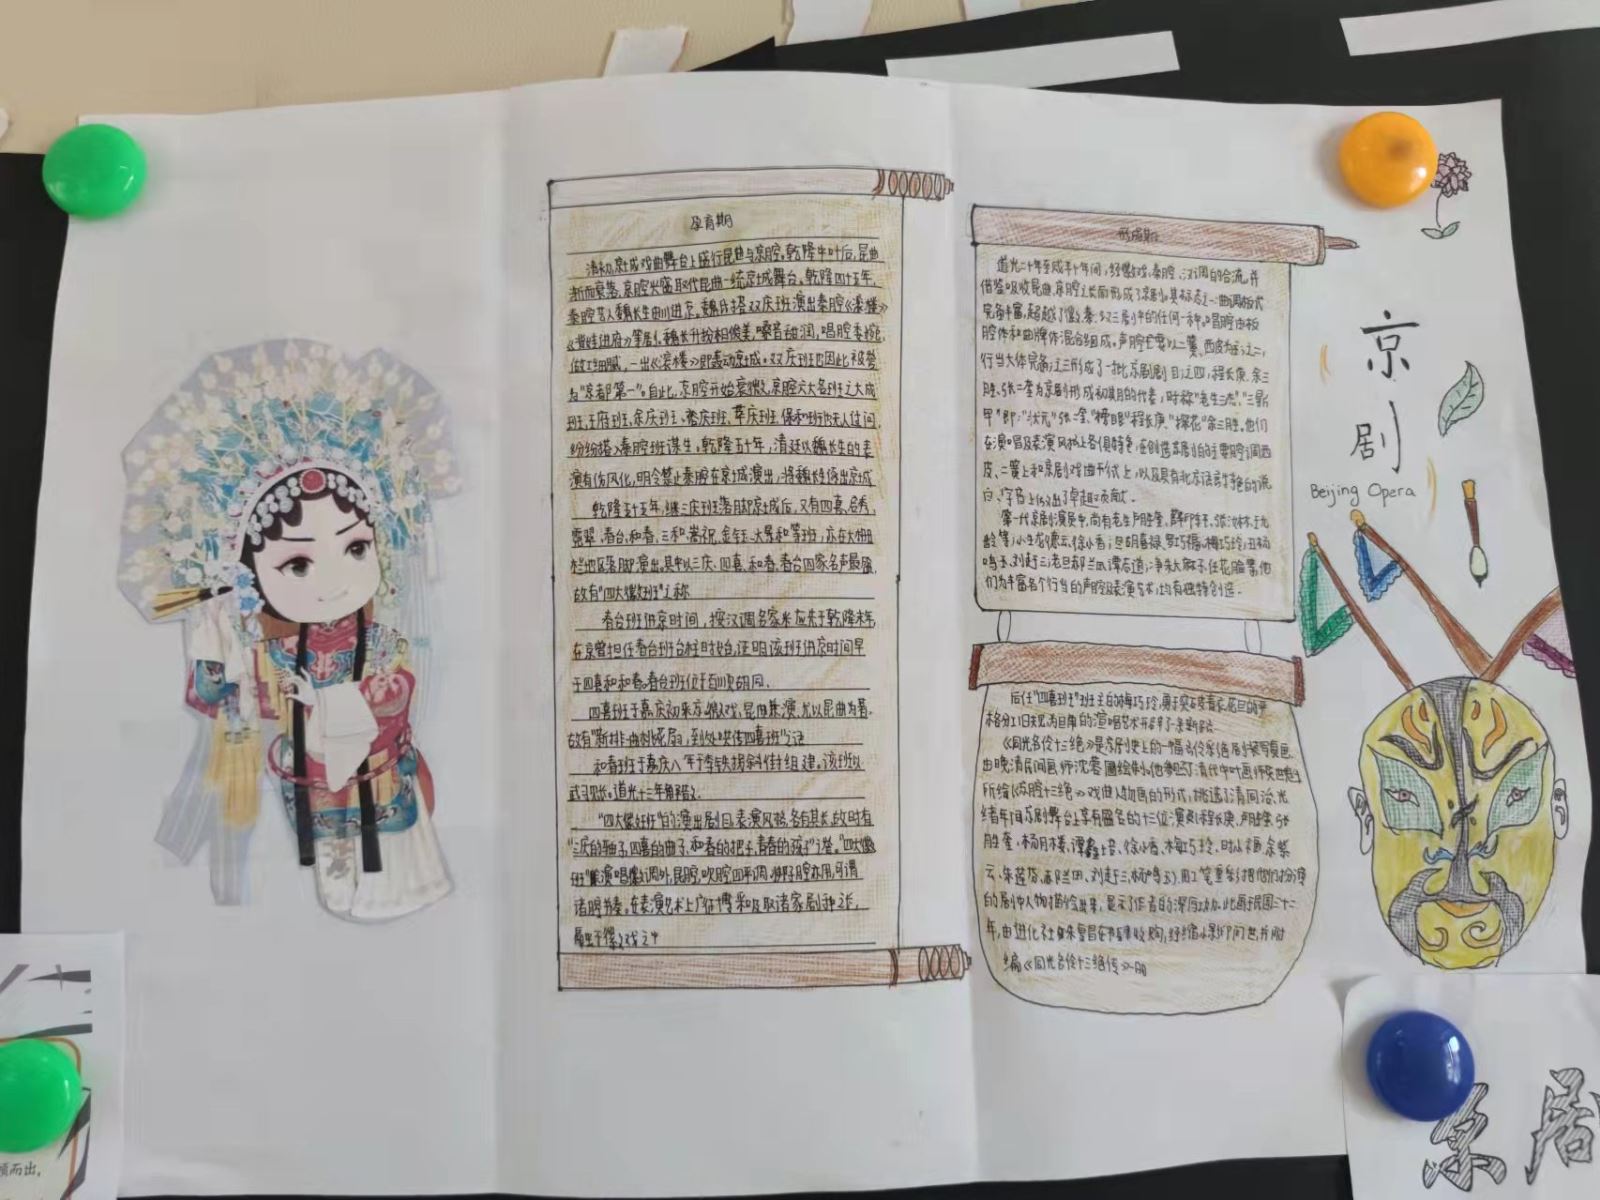 孕育期
清初,京城戏曲舞台上盛行昆曲与京腔。乾隆中叶后,昆曲
渐而衰落,京腔兴盛取代昆曲一统京城舞台。乾隆四十五年,
秦腔艺人魏长生由川进京。魏氏搭双庆班演出秦腔《滚楼》
《背娃进府》等剧。魏长升扮相俊美,嗓音甜润,唱腔委婉,
做工细腻,一出《滚楼》即轰动京城。双庆班也因此被誉
为"京都第一"。自此,京腔开始衰微,京腔六大名班之大成
班、王府班、余庆班、裕庆班、萃庆班、保和班也无人过问,
纷纷搭入秦腔班谋生。乾隆五十年,清廷以魏长生的表
演有伤风化,明令禁止秦腔在京城演出,将魏长生逐出京城
乾隆五十五年,继三庆班落脚京城后,又有四喜、启秀、
霓翠、春台、和春、三和、嵩祝、金钰、大景和等班,亦在大栅
栏地区落脚演出。其中以三庆、四喜、和春、春台四家名声最盛,
故有"四大徽班"之称
春台班进京时间,按汉调名家米应先于乾隆末年
在京曾担任春台班台柱时始,证明该班进京时间早
于四喜和和春。春台班位于百顺胡同、
四喜班于嘉庆初来京,徽戏,昆曲兼演,尤以昆曲为著。
故有"新排一曲桃花扇,到处哄传四喜班"之
和春班于嘉庆八年于李铁拐斜街组建。该班以
武习见长。道光十三年解散。
"四大徽班"的演出剧目、表演风格,各有其长,故时有
"三庆的轴子,四喜的曲子,和春的把子,春台的孩子"之誉。"四大徽
班"兼演唱徽调外,昆腔、吹腔、四平调、梆子腔亦用,可谓
诸腔并奏。在表演艺术上广征博采,吸取诸家剧种之长,
融于徽戏之中
形成期
道光二十年至咸丰十年间,经徽戏、秦腔、汉调的合流,并
借鉴吸收昆曲、京腔之长而形成了京剧。其标志之一:曲调板式
完备丰富,超越了徽、秦、汉三剧中的任何一种。唱腔由板
腔体和曲牌体混合组成。声腔主要以二簧、西皮为主;之二,
行当大体完备;之三形成了一批京剧剧目;之四,程长庚、余三
胜、张二奎为京剧形成初期的代表,时称"老生三杰"、"三鼎
甲"即:"状元"张二奎、"榜眼"程长庚、"探花"余三胜。他们
在演唱及表演风格上各俱特色,在创造京剧的主要腔调西
皮、二簧上和京剧戏曲形式上,以及具有北京语言特色的说
白、字音上作出了卓越贡献。
第一代京剧演员中,尚有老生卢胜奎、薛印轩、张汝林、王九
龄等;小生龙德云、徐小香;旦胡喜禄、罗巧福、梅巧玲;丑杨
鸣玉、刘赶三;老旦郝兰田、谭志道;净朱大麻子、任花脸等,他
们为丰富各个行当的声腔及表演艺术,均有独特创造。
后任"四喜班"班主的梅巧玲,勇于突破青衣、花旦的严
格分工旧规,为旦角的演唱艺术开辟了条新路
《同光名伶十三绝》是京剧史上的一幅名伶彩绘剧装写真画。
由晚清民间画师沈蓉圃绘制。他参照了清代中叶画师贺世魁
所绘《京腔十三绝》戏曲人物画的形式,挑选了清同治、光
绪年间京剧舞台上享有盛名的十三位演员(程长庚、卢胜奎、张
胜奎、杨月楼、谭鑫培、徐小香、梅巧玲、时小福、余紫
云、朱莲芬、郝兰田、刘赶三、杨鸣玉),用工笔重彩把他们扮演
的剧中人物描绘出来,显示了作者的深厚功力。此画于民国三十二
年,由进化社朱复昌在书肆收购,经缩小影印问世,并附
编《同光名伶十三绝传》一册
京
剧
Beijing Opera
京剧
而出,